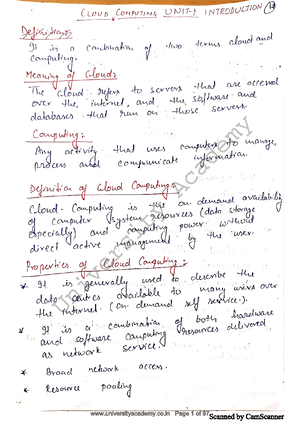 CLOUD COMPUTING UNIT-1 INTRODUCTION
Definition:
It is a combination of two terms cloud and
computing.
Meaning of Cloud:
The cloud refers to servers that are accessed
over the internet, and the software and
databases that run on those servers.
Computing:
Any activity that uses computers to manage,
process and communicate information.
Definition of Cloud Computing:
Cloud-Computing is the on-demand availability
of computer system resources (data storage
especially) and computing power without
direct active management by the user.
Properties of Cloud Computing:
* It is generally used to describe the
data centres available to many users over
the internet. (on demand self service).
* It is a combination of both hardware
and software computing resources delivered
as network service.
* Broad network access.
* Resource pooling
University Academy
www.universityacademy.co.in Page 1 of 97
Scanned by CamScanner